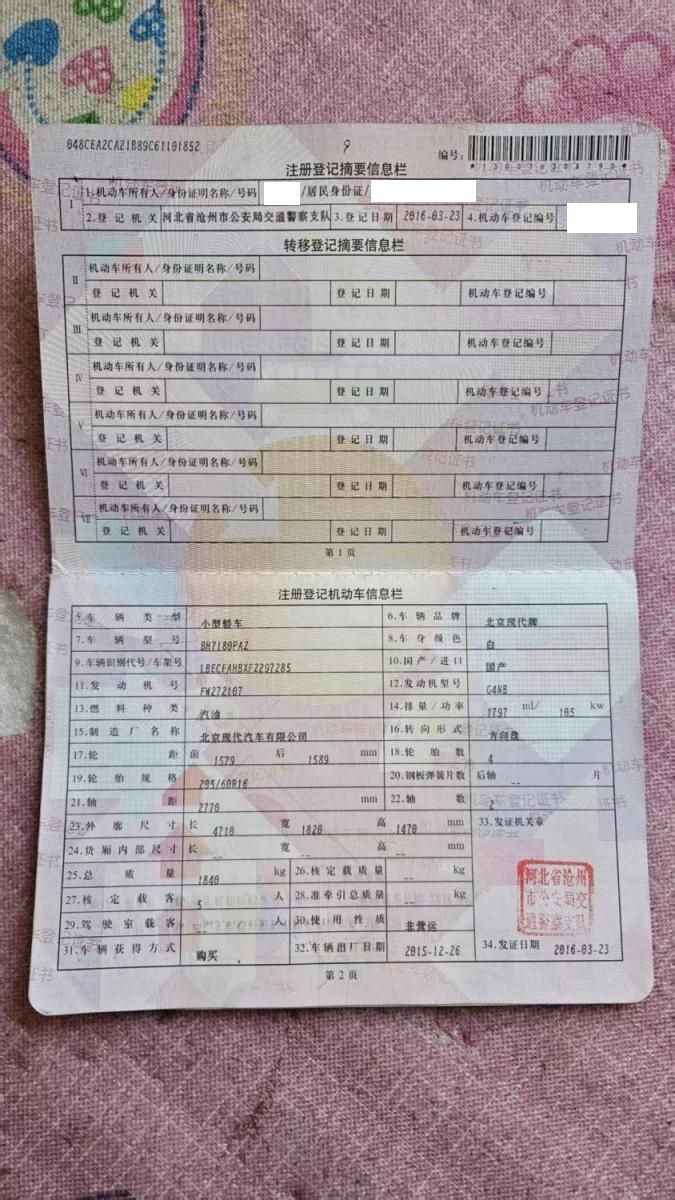 048CEA2CA21B89C61101852
编号：
*130036303790*
注册登记摘要信息栏
I 1.机动车所有人/身份证明名称/号码 /居民身份证/
2.登记机关 河北省沧州市公安局交通警察支队 3.登记日期 2016-03-23 4.机动车登记编号
转移登记摘要信息栏
II 机动车所有人/身份证明名称/号码
登记机关 登记日期 机动车登记编号
III 机动车所有人/身份证明名称/号码
登记机关 登记日期 机动车登记编号
IV 机动车所有人/身份证明名称/号码
登记机关 登记日期 机动车登记编号
V 机动车所有人/身份证明名称/号码
登记机关 登记日期 机动车登记编号
VI 机动车所有人/身份证明名称/号码
登记机关 登记日期 机动车登记编号
VII 机动车所有人/身份证明名称/号码
登记机关 登记日期 机动车登记编号
第1页
注册登记机动车信息栏
5.车辆类型 小型轿车 6.车辆品牌 北京现代牌
7.车辆型号 BH7180PAZ 8.车身颜色 白
9.车辆识别代号/车架号 LBECFAHBXFZ297285 10.国产/进口 国产
11.发动机号 FW272107 12.发动机型号 G4NB
13.燃料种类 汽油 14.排量/功率 1797 ml/ 105 kw
15.制造厂名称 北京现代汽车有限公司 16.转向形式 方向盘
17.轮距 前 1579 后 1589 mm 18.轮胎数 4
19.轮胎规格 205/60R16 20.钢板弹簧片数 后轴 -- 片
21.轴距 2770 mm 22.轴数 2
23.外廓尺寸 长 4710 宽 1820 高 1470 mm 33.发证机关章
24.货厢内部尺寸 长 -- 宽 -- 高 -- mm
25.总质量 1840 kg 26.核定载质量 -- kg
27.核定载客 5 人 28.准牵引总质量 -- kg
29.驾驶室载客 -- 人 30.使用性质 非营运
31.车辆获得方式 购买 32.车辆出厂日期 2015-12-26 34.发证日期 2016-03-23
河北省沧州
市公安局交
通警察支队
第2页